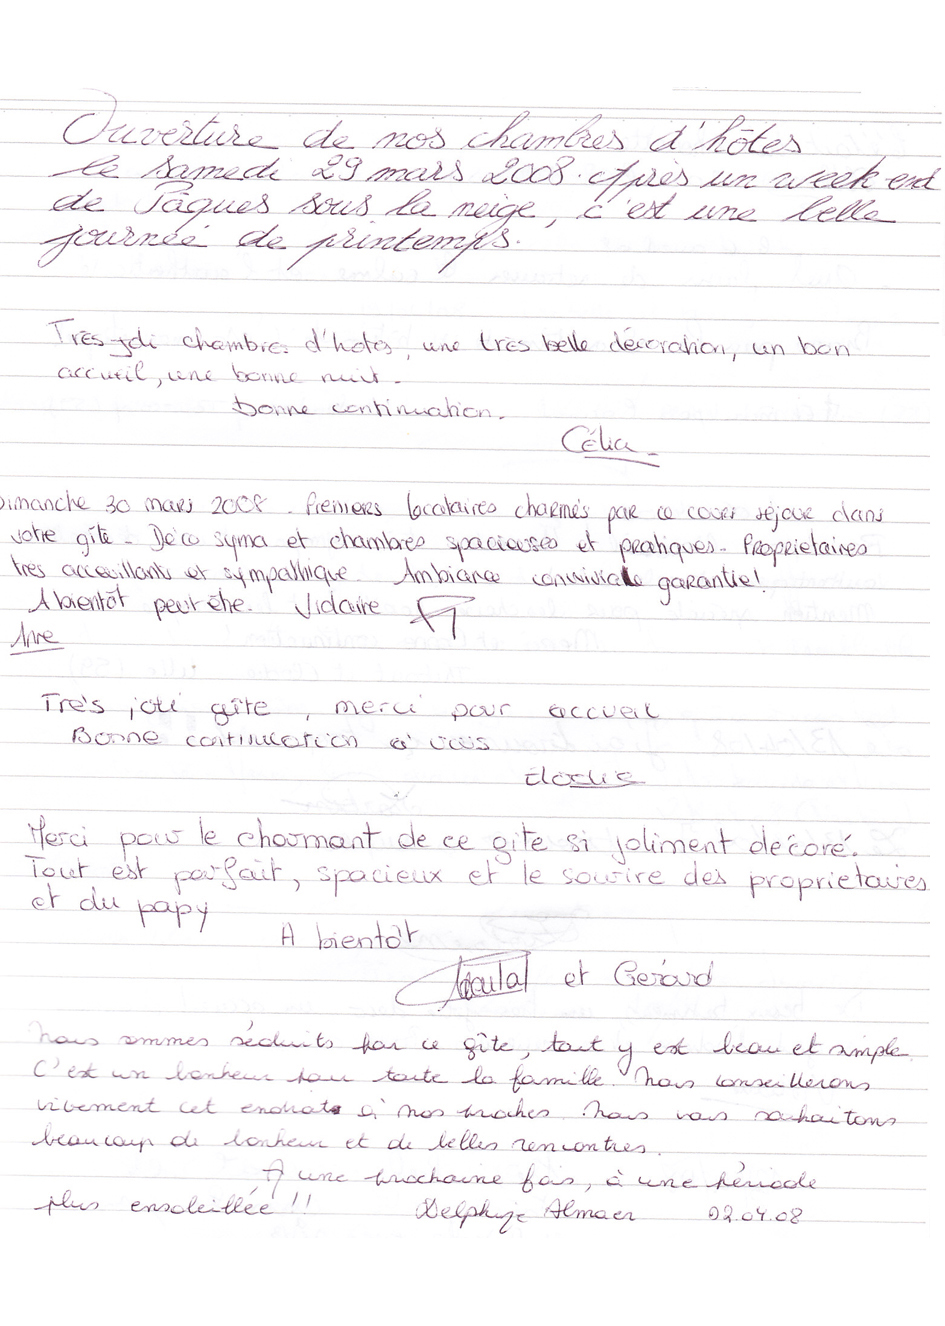 Ouverture de nos chambres d'hôtes
le samedi 29 mars 2008. Après un week end
de Pâques sous la neige, c'est une belle
journée de printemps.
Très joli chambres d'hotes, une très belle décoration, un bon
accueil, une bonne nuit.
Bonne continuation.
Célia
Dimanche 30 mars 2008. Premiers locataires charmés par ce cours séjour dans
votre gîte. Déco sympa et chambres spacieuses et pratiques. Proprietaires
très acceuillants et sympathique. Ambiance conviviale garantie!
A bientôt peut être.
Très joli gîte, merci pour accueil
Bonne continuation à vous
Elodie
Merci pour le charmant de ce gite si joliment décoré.
Tout est parfait, spacieux et le sourire des proprietaires
et du papy
A bientôt
et Gérard
Nous sommes séduits par ce gîte, tout y est beau et simple.
C'est un bonheur pour toute la famille. Nous conseillerons
vivement cet endroit à nos proches. Nous vous souhaitons
beaucoup de bonheur et de belles rencontres.
A une prochaine fois, à une période
plus ensoleillée !! 02.04.08